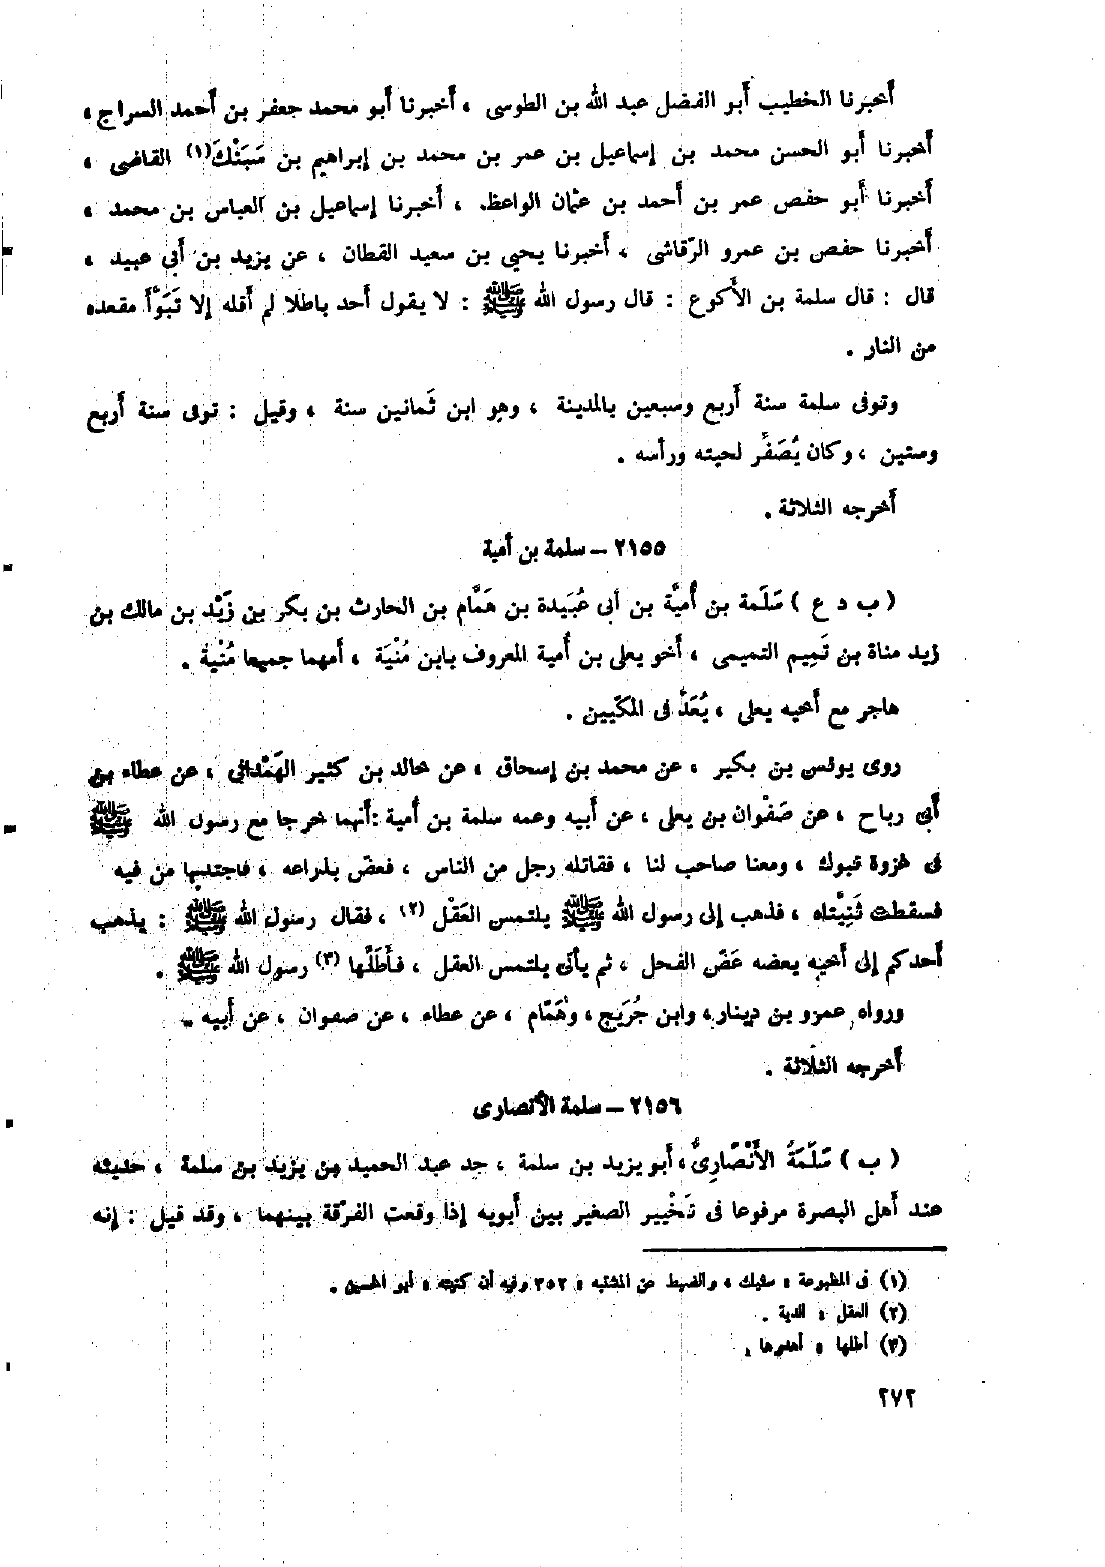 أخبرنا الخطيب أبو الفضل عبد الله بن الطوسى ، أخبرنا أبو محمد جعفر بن أحمد السراج ،
أخبرنا أبو الحسن محمد بن إسماعيل بن عمر بن محمد بن إبراهيم بن سَبَنْك(١) القاضى ،
أخبرنا أبو حفص عمر بن أحمد بن عثمان الواعظ ، أخبرنا إسماعيل بن العباس بن محمد ،
أخبرنا حفص بن عمرو الرّقاشى ، أخبرنا يحيى بن سعيد القطان ، عن يزيد بن أبى عبيد ،
قال : قال سلمة بن الأكوع : قال رسول الله ﷺ : لا يقول أحد باطلا لم أقله إلا تَبَوَّأ مقعده
من النار .
وتوفى سلمة سنة أربع وسبعين بالمدينة ، وهو ابن ثَمانين سنة ، وقيل : توفى سنة أربع
وستين ، وكان يُصَفِّر لحيته ورأسه .
أخرجه الثلاثة .
٢١٥٥ – سلمة بن أمية
( ب د ع ) سَلَمة بن أُميَّة بن أبى عُبَيدة بن هَمَّام بن الحارث بن بكر بن زَيْد بن مالك بن
زيد مناة بن تَمِيم التميمى ، أخو يعلى بن أُمية المعروف بابن مُنْيَة ، أمهما جميعا مُنْية .
هاجر مع أخيه يعلى ، يُعَدّ فى المكّيين .
روى يونس بن بكير ، عن محمد بن إسحاق ، عن خالد بن كثير الهَمْدانى ، عن عطاء بن
أبى رباح ، عن صَفْوان بن يعلى ، عن أبيه وعمه سلمة بن أمية :أنهما خرجا مع رسول الله ﷺ
فى غزوة تبوك ، ومعنا صاحب لنا ، فقاتله رجل من الناس ، فعضّ بذراعه ، فاجتذبها من فيه
فسقطت ثَنِيَّتاه ، فذهب إلى رسول الله ﷺ يلتمس العَقْل (٢) ، فقال رسول الله ﷺ : يذهب
أحدكم إلى أخيه يعضه عَضّ الفحل ، ثم يأتى يلتمس العقل ، فأَطَلَّها (٣) رسول الله ﷺ .
ورواه عمرو بن دينار ، وابن جُرَيج ، وهَمّام ، عن عطاء ، عن صفوان ، عن أبيه .
أخرجه الثلاثة .
٢١٥٦ – سلمة الأنصارى
( ب ) سَلَمَةُ الأَنْصَارِىُّ ، أبو يزيد بن سلمة ، جد عبد الحميد بن يزيد بن سلمة ، حديثه
عند أهل البصرة مرفوعا فى تَخْيير الصغير بين أبويه إذا وقعت الفرقة بينهما ، وقد قيل : إنه
(١) فى المطبوعة : سنبك ، والضبط عن المشتبه : ٣٥٢ وفيه أن كنيته : أبو الحسين .
(٢) العقل : الدية .
(٣) أطلها : أهدرها .
٢٧٢